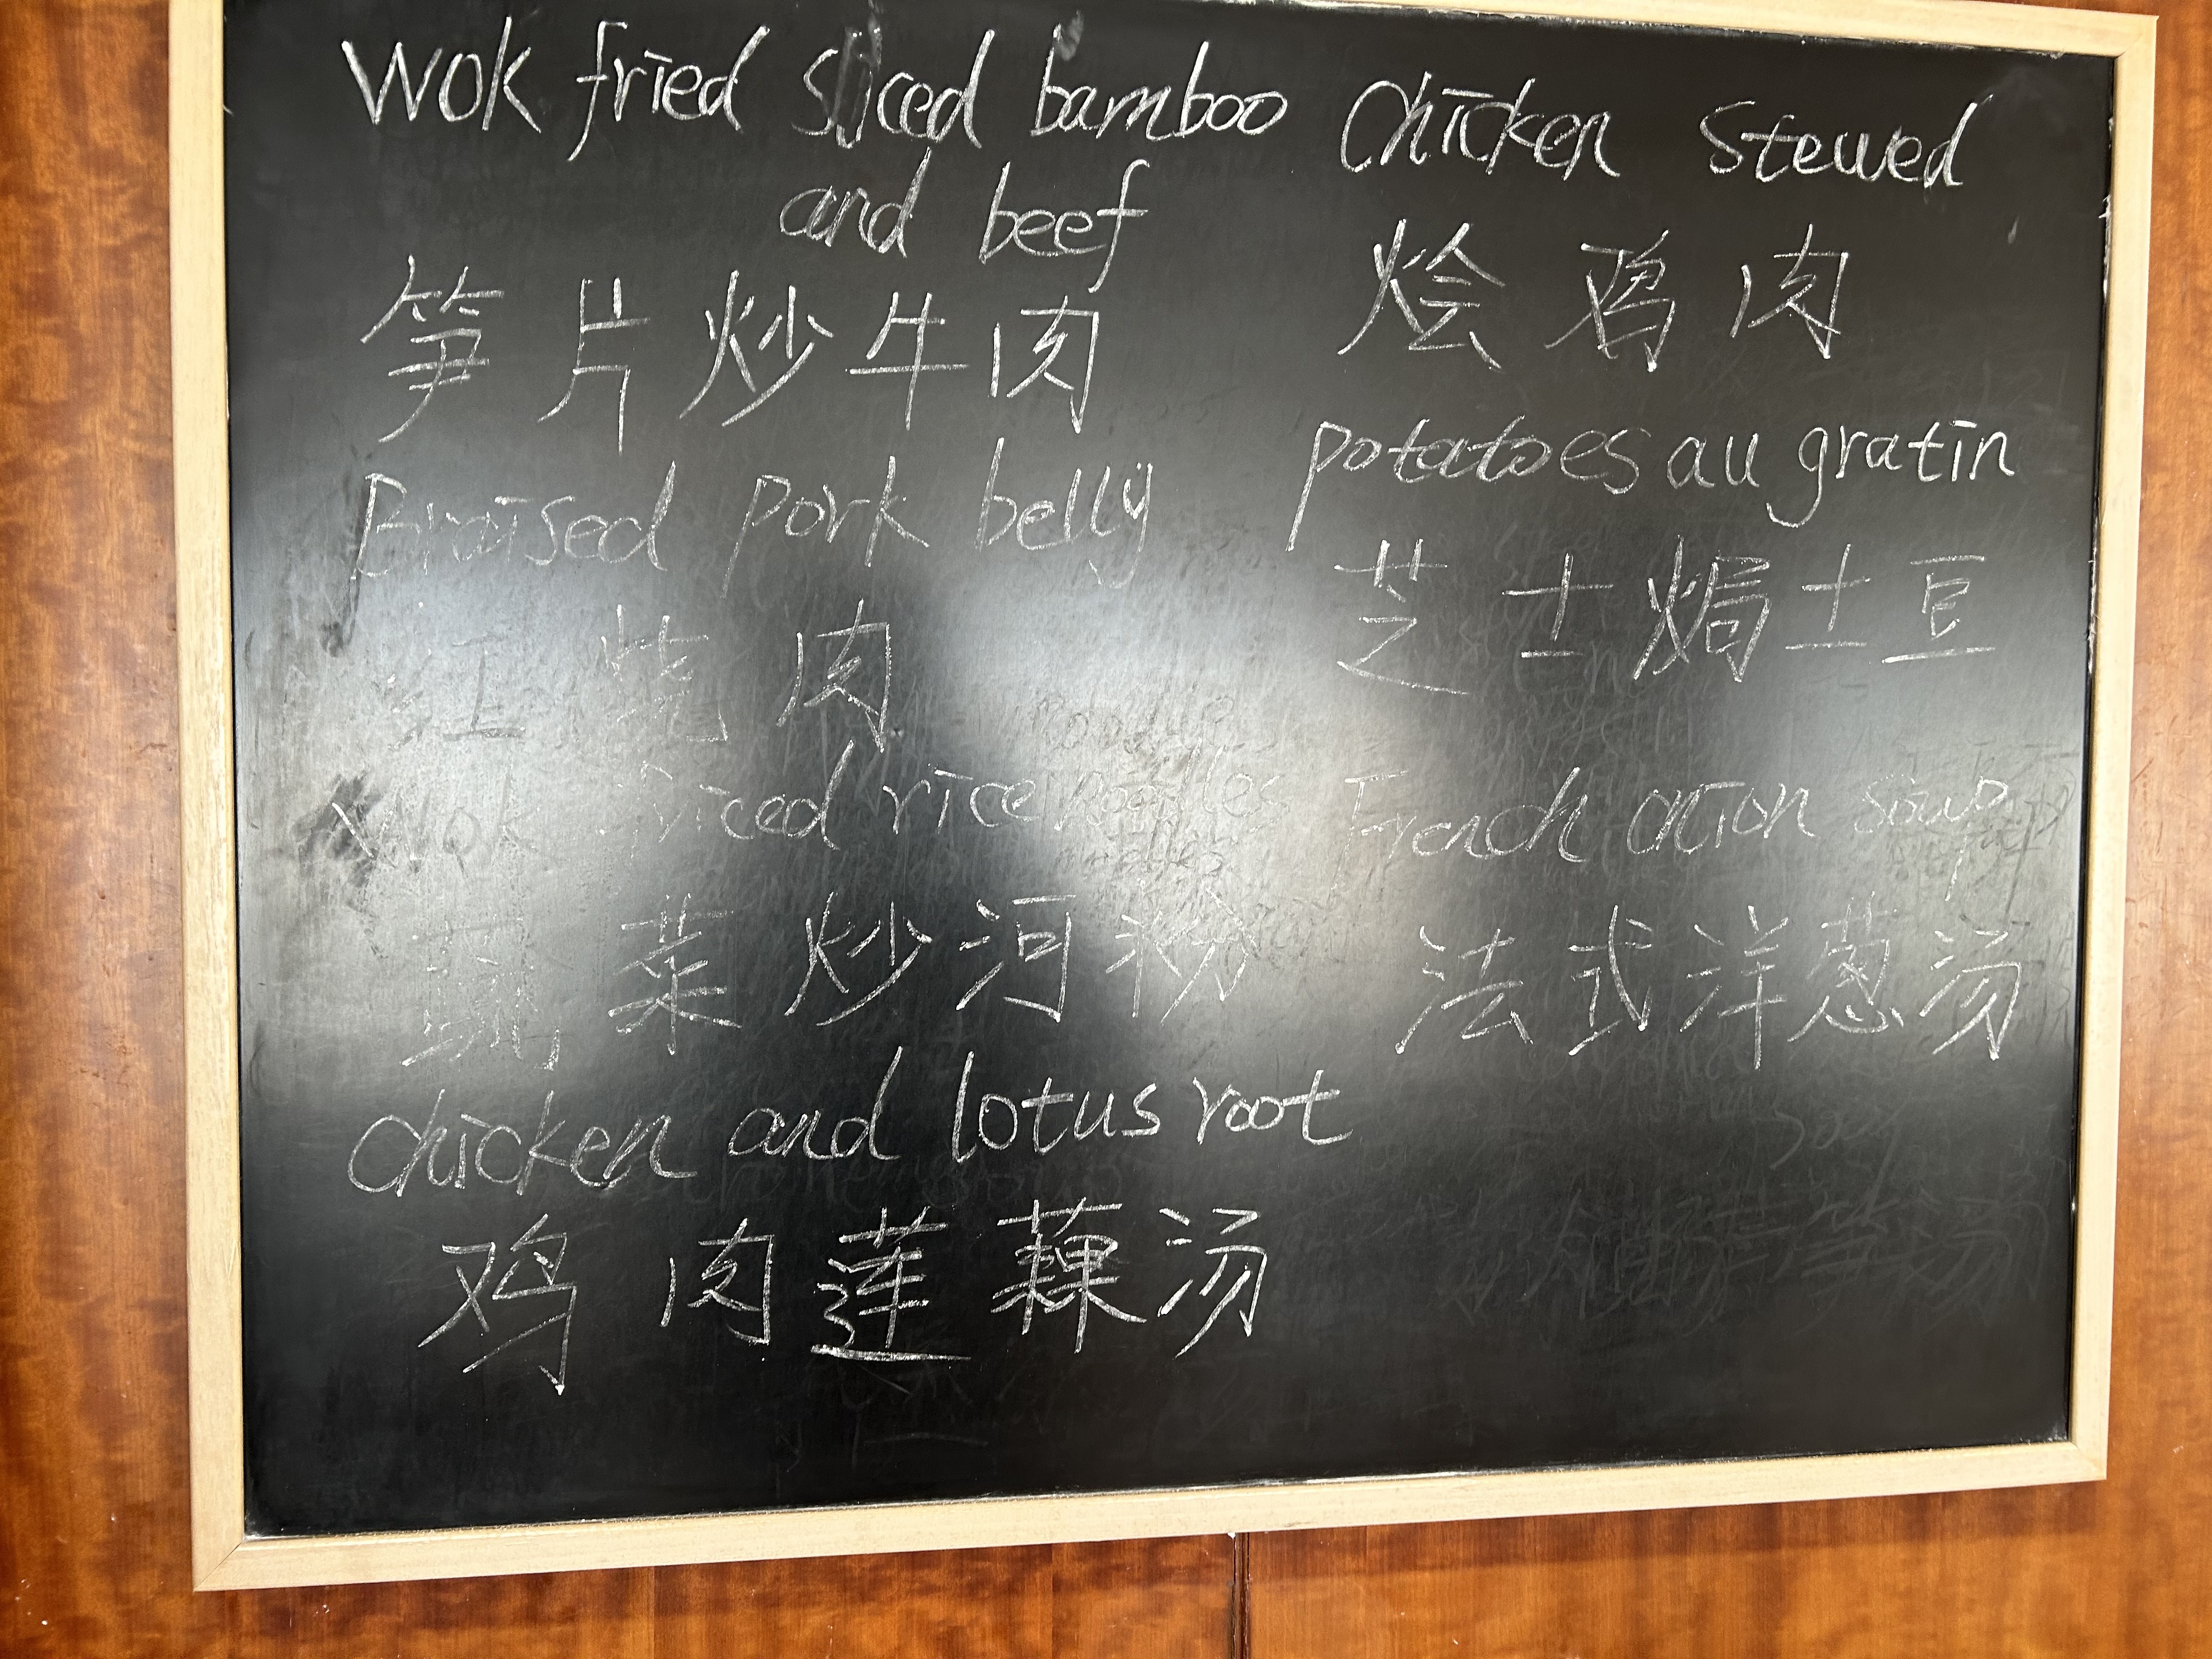 Wok fried sliced bamboo
and beef
笋片炒牛肉
Braised pork belly
红烧肉
Wok sliced rice noodles
蔬菜炒河粉
chicken and lotus root
鸡肉莲藕汤
Chicken stewed
烩鸡肉
potatoes au gratin
芝士焗土豆
French onion soup
法式洋葱汤